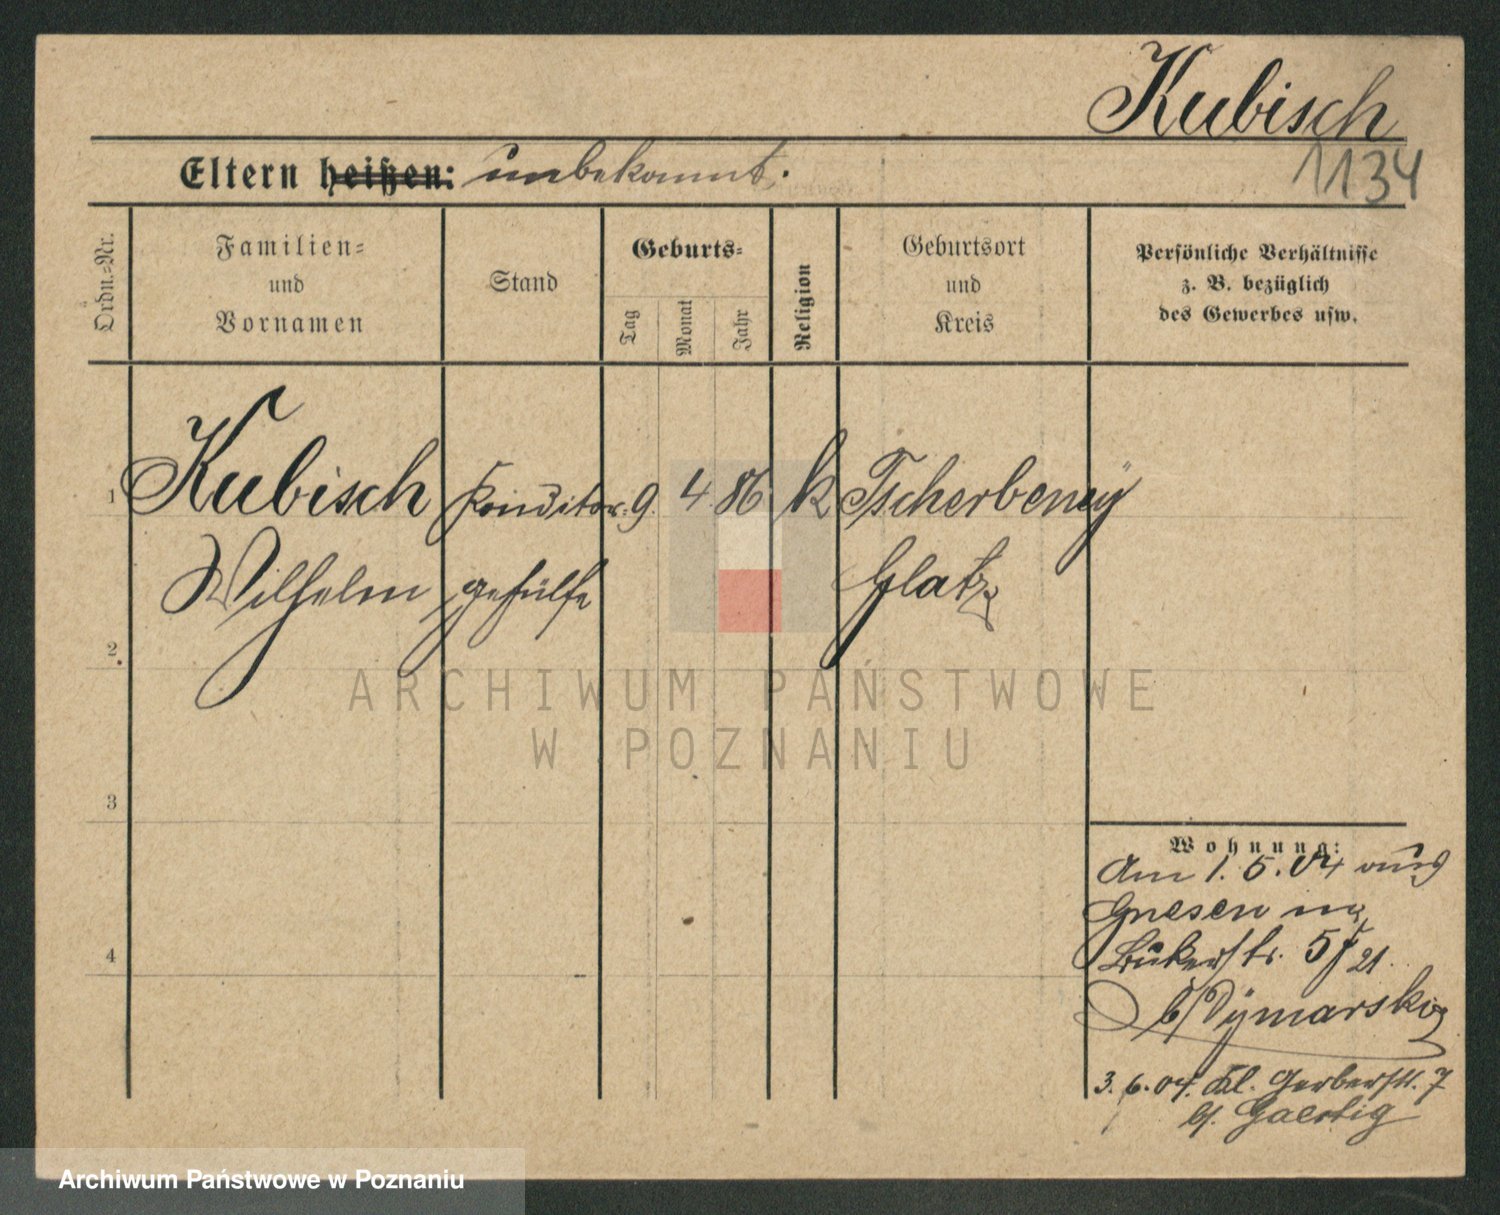 Kubisch
1134
Eltern heißen: unbekannt.
Ordn.=Nr.
Familien=
und
Vornamen
Stand
Geburts=
Tag
Monat
Jahr
Religion
Geburtsort
und
Kreis
Persönliche Verhältnisse
z. B. bezüglich
des Gewerbes usw.
1 Kubisch Konditor= 9. 4. 86 k Tscherbeney
Wilhelm gehülfe Glatz
2
3
4
Wohnung:
Am 1. 5. 04 aus
Gnesen
Bukerstr. 21.
b/ Dymarski
3. 6. 04. Kl. Gerberstr. 7
b/. Gaertig
ARCHIWUM PAŃSTWOWE
W POZNANIU
Archiwum Państwowe w Poznaniu